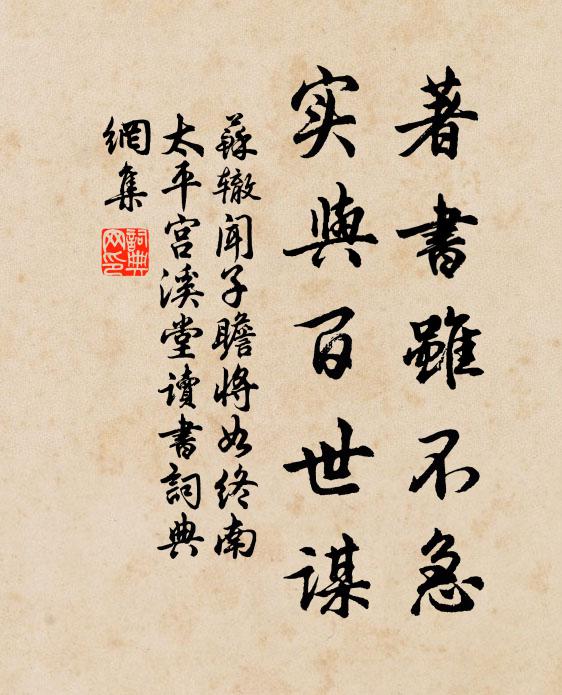 著書雖不急
实與百世謀
蘇辙闻子瞻将如终南
太平宫溪堂讀書詞典
網集
詞典網印